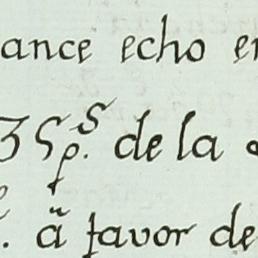 ance echo en
35 p.s de la
ä favor de